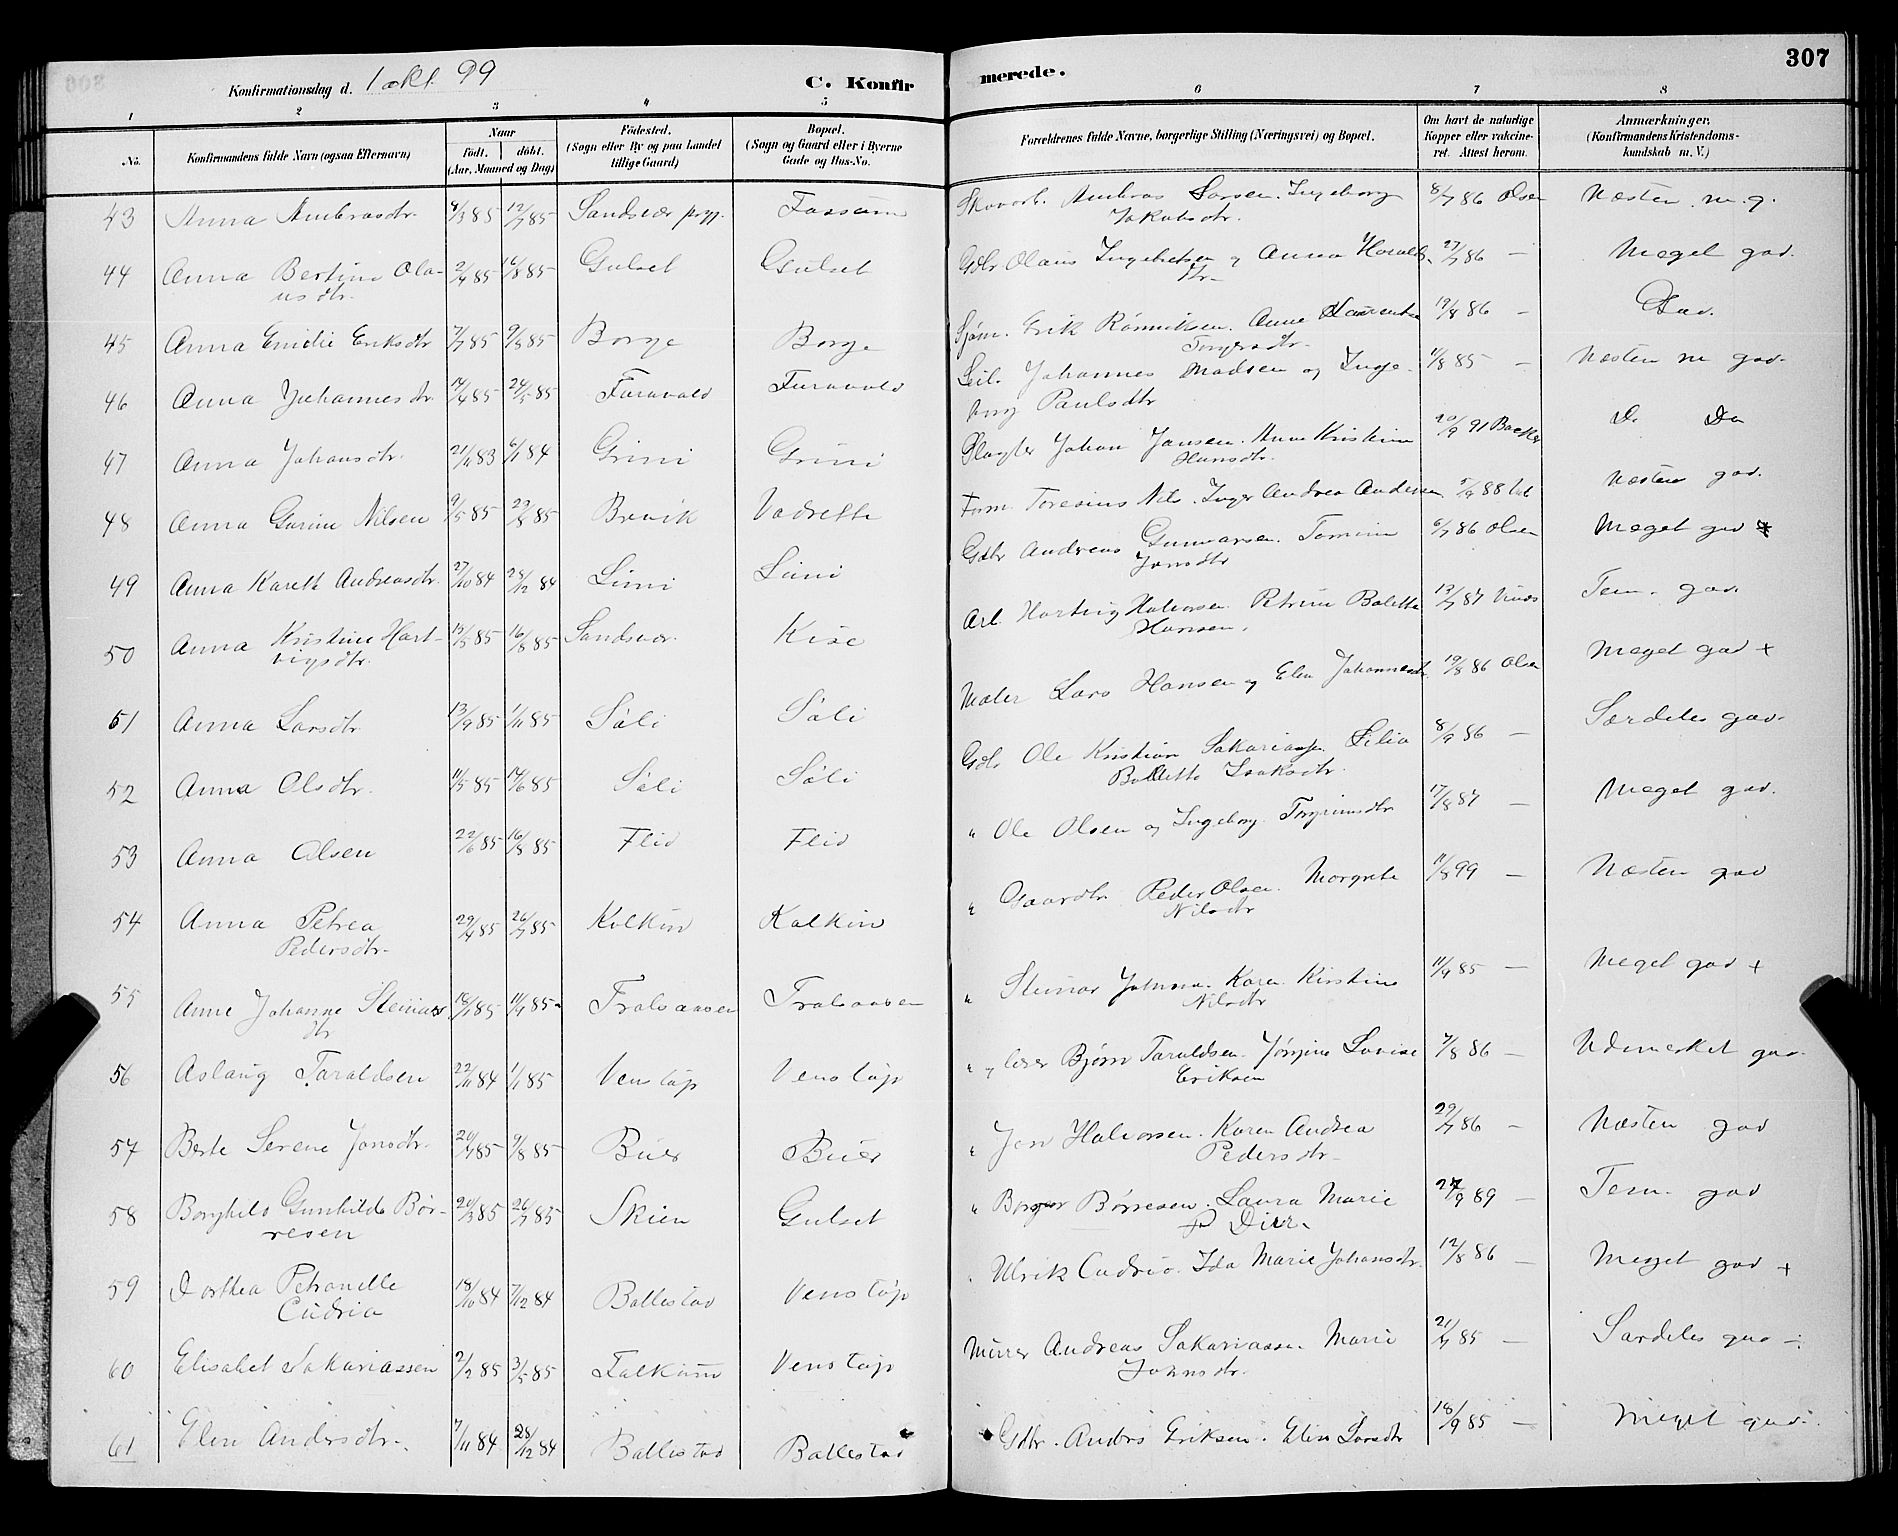 307
Konfirmationsdag d. 1 okt. 99
C. Konfirmerede.
1 2 3 4 5 6 7 8
No.
Konfirmandens fulde Navn (ogsaa Efternavn)
Naar
født. døbt.
(Aar, Maaned og Dag)
Fødested.
(Sogn eller By og paa Landet
tillige Gaard)
Bopæl.
(Sogn og Gaard eller i Byerne
Gade og Hus-No.
Forældrenes fulde Navne, borgerlige Stilling (Næringsvei) og Bopæl.
Om havt de naturlige
Kopper eller vakcineret.
Attest herom.
Anmærkninger,
(Konfirmandens Kristendomskundskab
m. V.)
43 Anna Ambrosdtr. 85 12/7 85 Sandsvær Fossum Ambros Larsen. Ingeborg 8/7 86 Olsen Næsten m. g.
Jakobsdtr.
44 Anna Bertine Ola- 2/4 85 16/8 85 Gulset Gulset Gdbr Olaus og Anna 27/7 86 — Meget god.
usdtr. dtr.
45 Anna Emilie Eriksdtr 7/7 85 9/8 85 Borge Borge Sjøm. Erik Anne 19/8 86 — God.
46 Anna Johannesdtr. 14/4 85 24/5 85 Furuvold Johannes Madsen og Inge- 11/8 85 — Næsten m god.
borg Paulsdtr
47 Anna Johansdtr. 21/11 83 6/1 84 Grini Grini Slagter Johan Jansen. Anne Kristine 91 Backer D. Do
Hansdtr.
48 Anna Gurine Nilsen 9/5 85 29/8 85 Brevik Vadrette Inger Andrea Andersen 88 Næsten god.
49 Anna Kareth Andreasdtr. 27/10 84 28/12 84 Limi Limi Gdbr Andreas Gunnarsen. Tomine 6/7 86 Olsen Meget god
Jonsdtr
50 Anna Kristine Hart- 15/5 85 16/8 85 Sandsvær. Kise Arb Hartvig Halvorsen. Petrine Bolette 13/7 87 Tem. god.
vigsdtr. Hansen.
51 Anna Larsdtr 13/9 85 1/11 85 Søli Søli Maler Lars Hansen og Elen Johannesdtr. 19/8 86 Olsen Meget god +
52 Anna Olsdtr. 11/5 85 14/6 85 Søli Søli Gdbr Ole Kristian Sakariasen. Silia 8/9 86 — Særdeles god.
Bolette Isaksdtr.
53 Anna Olsen 22/6 85 16/8 85 Flid Flid " Ole Olsen og Ingeborg Torgrimsdtr 17/8 87 — Meget god.
54 Anna Petrea 29/4 85 26/7 85 Kolkin Kalkin " Peder Olsen. Margrete 11/8 99 — Næsten god
Pedersdtr. Nilsdtr
55 Anne Johanne Steinars 85 Frolsaasen Frolsaasen " Steinar Johnsen. Karen Kirstine 11/9 85 — Meget god +
dtr Nilsdtr
56 Aslaug Taraldsen 22/11 84 1/1 85 Venstøp Venstøp " Bjørn Taraldsen. Jørgine Lovise 7/8 86 — Udmerket god.
Eriksen
57 Berte Serene Jonsdtr. 20/7 85 9/8 85 Buer Buer " Jon Halvorsen. Karen Andrea 29/7 86 — Næsten god
Pedersdtr.
58 Borghild Gunhilda Bør- 20/3 85 26/7 85 Skien Gulset " Borger Børresen. Laura Marie 9 89 — Tem. god
resen
59 Dorthea Petronelle 18/10 84 7/12 84 Bollestad Venstøp " Ulrik Cudrio. Ida Marie Johansdtr. 12/8 86 — Meget god +
Cudrio
60 Elisabet Sakariassen 2/2 85 3/5 85 Falkum Venstøp Murer Andreas Sakariassen Marie 21/7 85 — Særdeles god
Johnsdtr.
61 Elen Andersdtr. 7/11 84 28/12 84 Bollestad Bollestad Gdbr. Anders Eriksen. Elen Larsdtr 18/9 85 — Meget god.